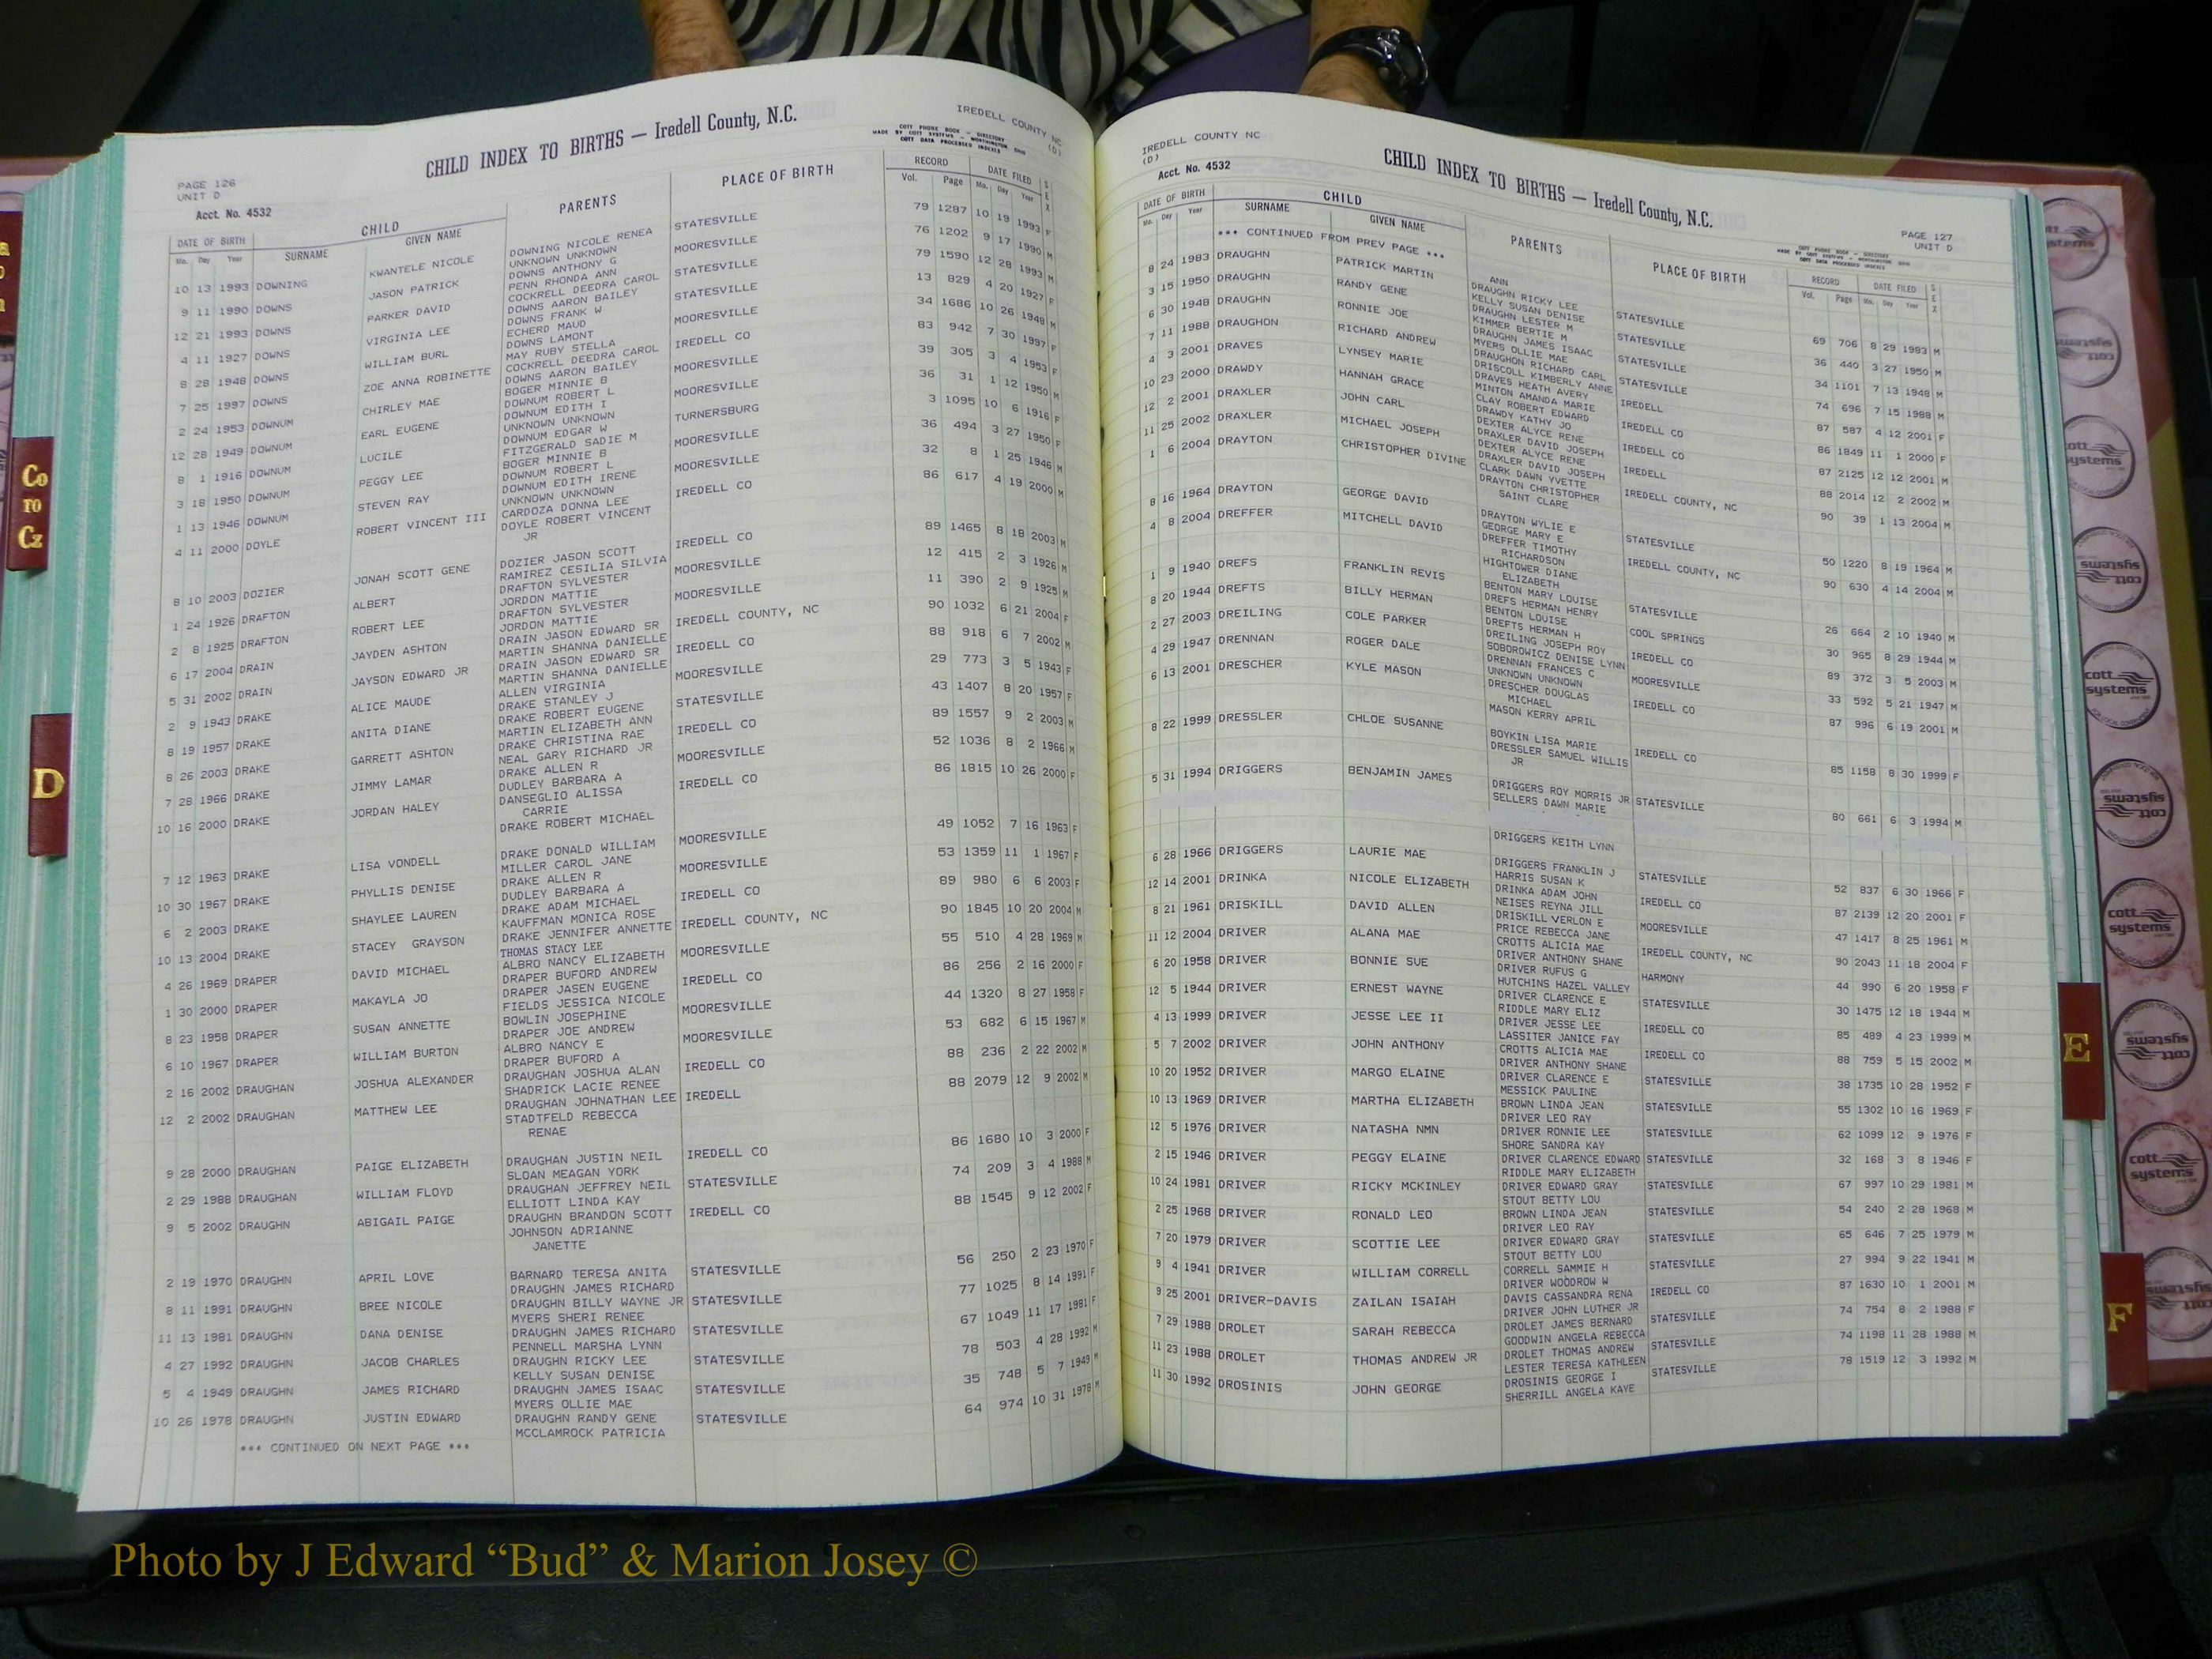 PAGE 126
UNIT D
Acct. No. 4532
CHILD INDEX TO BIRTHS — Iredell County, N.C.
IREDELL COUNTY NC
(D)
COTT PHONE BOOK — DIRECTORY
MADE BY COTT SYSTEMS — WORTHINGTON, OHIO
COTT DATA PROCESSED INDEXES
DATE OF BIRTH CHILD PARENTS PLACE OF BIRTH RECORD DATE FILED SEX
Mo. Day Year SURNAME GIVEN NAME Vol. Page Mo. Day Year
10 13 1993 DOWNING KWANTELE NICOLE DOWNING NICOLE RENEA STATESVILLE 79 1287 10 19 1993 F
UNKNOWN UNKNOWN
9 11 1990 DOWNS JASON PATRICK DOWNS ANTHONY G MOORESVILLE 76 1202 9 17 1990 M
PENN RHONDA ANN
12 21 1993 DOWNS PARKER DAVID COCKRELL DEEDRA CAROL STATESVILLE 79 1590 12 28 1993 M
DOWNS AARON BAILEY
4 11 1927 DOWNS VIRGINIA LEE DOWNS FRANK W STATESVILLE 13 829 4 20 1927 F
ECHERD MAUD
8 28 1948 DOWNS WILLIAM BURL DOWNS LAMONT MOORESVILLE 34 1686 10 26 1948 M
MAY RUBY STELLA
7 25 1997 DOWNS ZOE ANNA ROBINETTE COCKRELL DEEDRA CAROL IREDELL CO 83 942 7 30 1997 F
DOWNS AARON BAILEY
2 24 1953 DOWNUM CHIRLEY MAE BOGER MINNIE B MOORESVILLE 39 305 3 4 1953 F
DOWNUM ROBERT L
12 28 1949 DOWNUM EARL EUGENE DOWNUM EDITH I MOORESVILLE 36 31 1 12 1950 M
UNKNOWN UNKNOWN
8 1 1916 DOWNUM LUCILE DOWNUM EDGAR W TURNERSBURG 3 1095 10 6 1916 F
FITZGERALD SADIE M
3 18 1950 DOWNUM PEGGY LEE BOGER MINNIE B MOORESVILLE 36 494 3 27 1950 F
DOWNUM ROBERT L
1 13 1946 DOWNUM STEVEN RAY DOWNUM EDITH IRENE MOORESVILLE 32 8 1 25 1946 M
UNKNOWN UNKNOWN
4 11 2000 DOYLE ROBERT VINCENT III CARDOZA DONNA LEE IREDELL CO 86 617 4 19 2000 M
DOYLE ROBERT VINCENT
JR
8 10 2003 DOZIER JONAH SCOTT GENE DOZIER JASON SCOTT IREDELL CO 89 1465 8 18 2003 M
RAMIREZ CESILIA SILVIA
1 24 1926 DRAFTON ALBERT DRAFTON SYLVESTER MOORESVILLE 12 415 2 3 1926 M
JORDON MATTIE
2 8 1925 DRAFTON ROBERT LEE DRAFTON SYLVESTER MOORESVILLE 11 390 2 9 1925 M
JORDON MATTIE
6 17 2004 DRAIN JAYDEN ASHTON DRAIN JASON EDWARD SR IREDELL COUNTY, NC 90 1032 6 21 2004 F
MARTIN SHANNA DANIELLE
5 31 2002 DRAIN JAYSON EDWARD JR DRAIN JASON EDWARD SR IREDELL CO 88 918 6 7 2002 M
MARTIN SHANNA DANIELLE
2 9 1943 DRAKE ALICE MAUDE ALLEN VIRGINIA MOORESVILLE 29 773 3 5 1943 F
DRAKE STANLEY J
8 19 1957 DRAKE ANITA DIANE DRAKE ROBERT EUGENE STATESVILLE 43 1407 8 20 1957 F
MARTIN ELIZABETH ANN
8 26 2003 DRAKE GARRETT ASHTON DRAKE CHRISTINA RAE IREDELL CO 89 1557 9 2 2003 M
NEAL GARY RICHARD JR
7 28 1966 DRAKE JIMMY LAMAR DRAKE ALLEN R MOORESVILLE 52 1036 8 2 1966 M
DUDLEY BARBARA A
10 16 2000 DRAKE JORDAN HALEY DANSEGLIO ALISSA IREDELL CO 86 1815 10 26 2000 F
CARRIE
DRAKE ROBERT MICHAEL
7 12 1963 DRAKE LISA VONDELL DRAKE DONALD WILLIAM MOORESVILLE 49 1052 7 16 1963 F
MILLER CAROL JANE
10 30 1967 DRAKE PHYLLIS DENISE DRAKE ALLEN R MOORESVILLE 53 1359 11 1 1967 F
DUDLEY BARBARA A
6 2 2003 DRAKE SHAYLEE LAUREN DRAKE ADAM MICHAEL IREDELL CO 89 980 6 6 2003 F
KAUFFMAN MONICA ROSE
10 13 2004 DRAKE STACEY GRAYSON DRAKE JENNIFER ANNETTE IREDELL COUNTY, NC 90 1845 10 20 2004 M
THOMAS STACY LEE
4 26 1969 DRAPER DAVID MICHAEL ALBRO NANCY ELIZABETH MOORESVILLE 55 510 4 28 1969 M
DRAPER BUFORD ANDREW
1 30 2000 DRAPER MAKAYLA JO DRAPER JASEN EUGENE IREDELL CO 86 256 2 16 2000 F
FIELDS JESSICA NICOLE
8 23 1958 DRAPER SUSAN ANNETTE BOWLIN JOSEPHINE MOORESVILLE 44 1320 8 27 1958 F
DRAPER JOE ANDREW
6 10 1967 DRAPER WILLIAM BURTON ALBRO NANCY E MOORESVILLE 53 682 6 15 1967 M
DRAPER BUFORD A
2 16 2002 DRAUGHAN JOSHUA ALEXANDER DRAUGHAN JOSHUA ALAN IREDELL CO 88 236 2 22 2002 M
SHADRICK LACIE RENEE
12 2 2002 DRAUGHAN MATTHEW LEE DRAUGHAN JOHNATHAN LEE IREDELL 88 2079 12 9 2002 M
STADTFELD REBECCA
RENAE
9 28 2000 DRAUGHAN PAIGE ELIZABETH DRAUGHAN JUSTIN NEIL IREDELL CO 86 1680 10 3 2000 F
SLOAN MEAGAN YORK
2 29 1988 DRAUGHAN WILLIAM FLOYD DRAUGHAN JEFFREY NEIL STATESVILLE 74 209 3 4 1988 M
ELLIOTT LINDA KAY
9 5 2002 DRAUGHN ABIGAIL PAIGE DRAUGHN BRANDON SCOTT IREDELL CO 88 1545 9 12 2002 F
JOHNSON ADRIANNE
JANETTE
2 19 1970 DRAUGHN APRIL LOVE BARNARD TERESA ANITA STATESVILLE 56 250 2 23 1970 F
DRAUGHN JAMES RICHARD
8 11 1991 DRAUGHN BREE NICOLE DRAUGHN BILLY WAYNE JR STATESVILLE 77 1025 8 14 1991 F
MYERS SHERI RENEE
11 13 1981 DRAUGHN DANA DENISE DRAUGHN JAMES RICHARD STATESVILLE 67 1049 11 17 1981 F
PENNELL MARSHA LYNN
4 27 1992 DRAUGHN JACOB CHARLES DRAUGHN RICKY LEE STATESVILLE 78 503 4 28 1992 M
KELLY SUSAN DENISE
5 4 1949 DRAUGHN JAMES RICHARD DRAUGHN JAMES ISAAC STATESVILLE 35 748 5 7 1949 M
MYERS OLLIE MAE
10 26 1978 DRAUGHN JUSTIN EDWARD DRAUGHN RANDY GENE STATESVILLE 64 974 10 31 1978 M
MCCLAMROCK PATRICIA
*** CONTINUED ON NEXT PAGE ***
IREDELL COUNTY NC
(D)
Acct. No. 4532
CHILD INDEX TO BIRTHS — Iredell County, N.C.
PAGE 127
UNIT D
COTT PHONE BOOK — DIRECTORY
MADE BY COTT SYSTEMS — WORTHINGTON, OHIO
COTT DATA PROCESSED INDEXES
DATE OF BIRTH CHILD PARENTS PLACE OF BIRTH RECORD DATE FILED SEX
Mo. Day Year SURNAME GIVEN NAME Vol. Page Mo. Day Year
*** CONTINUED FROM PREV PAGE ***
ANN
8 24 1983 DRAUGHN PATRICK MARTIN DRAUGHN RICKY LEE STATESVILLE 69 706 8 29 1983 M
KELLY SUSAN DENISE
3 15 1950 DRAUGHN RANDY GENE DRAUGHN LESTER M STATESVILLE 36 440 3 27 1950 M
KIMMER BERTIE M
6 30 1948 DRAUGHN RONNIE JOE DRAUGHN JAMES ISAAC STATESVILLE 34 1101 7 13 1948 M
MYERS OLLIE MAE
7 11 1988 DRAUGHON RICHARD ANDREW DRAUGHON RICHARD CARL STATESVILLE 74 696 7 15 1988 M
DRISCOLL KIMBERLY ANNE
4 3 2001 DRAVES LYNSEY MARIE DRAVES HEATH AVERY IREDELL 87 587 4 12 2001 F
MINTON AMANDA MARIE
10 23 2000 DRAWDY HANNAH GRACE CLAY ROBERT EDWARD IREDELL CO 86 1849 11 1 2000 F
DRAWDY KATHY JO
12 2 2001 DRAXLER JOHN CARL DEXTER ALYCE RENE IREDELL CO 87 2125 12 12 2001 M
DRAXLER DAVID JOSEPH
11 25 2002 DRAXLER MICHAEL JOSEPH DEXTER ALYCE RENE IREDELL 88 2014 12 2 2002 M
DRAXLER DAVID JOSEPH
1 6 2004 DRAYTON CHRISTOPHER DIVINE CLARK DAWN YVETTE IREDELL COUNTY, NC 90 39 1 13 2004 M
DRAYTON CHRISTOPHER
SAINT CLARE
8 16 1964 DRAYTON GEORGE DAVID DRAYTON WYLIE E STATESVILLE 50 1220 8 19 1964 M
GEORGE MARY E
4 8 2004 DREFFER MITCHELL DAVID DREFFER TIMOTHY IREDELL COUNTY, NC 90 630 4 14 2004 M
RICHARDSON
HIGHTOWER DIANE
ELIZABETH
1 9 1940 DREFS FRANKLIN REVIS BENTON MARY LOUISE STATESVILLE 26 664 2 10 1940 M
DREFS HERMAN HENRY
8 20 1944 DREFTS BILLY HERMAN BENTON LOUISE COOL SPRINGS 30 965 8 29 1944 M
DREFTS HERMAN H
2 27 2003 DREILING COLE PARKER DREILING JOSEPH ROY IREDELL CO 89 372 3 5 2003 M
SOBOROWICZ DENISE LYNN
4 29 1947 DRENNAN ROGER DALE DRENNAN FRANCES C MOORESVILLE 33 592 5 21 1947 M
UNKNOWN UNKNOWN
6 13 2001 DRESCHER KYLE MASON DRESCHER DOUGLAS IREDELL CO 87 996 6 19 2001 M
MICHAEL
MASON KERRY APRIL
8 22 1999 DRESSLER CHLOE SUSANNE BOYKIN LISA MARIE IREDELL CO 85 1158 8 30 1999 F
DRESSLER SAMUEL WILLIS
JR
5 31 1994 DRIGGERS BENJAMIN JAMES DRIGGERS ROY MORRIS JR STATESVILLE 80 661 6 3 1994 M
SELLERS DAWN MARIE
DRIGGERS KEITH LYNN
6 28 1966 DRIGGERS LAURIE MAE DRIGGERS FRANKLIN J STATESVILLE 52 837 6 30 1966 F
HARRIS SUSAN K
12 14 2001 DRINKA NICOLE ELIZABETH DRINKA ADAM JOHN IREDELL CO 87 2139 12 20 2001 F
NEISES REYNA JILL
8 21 1961 DRISKILL DAVID ALLEN DRISKILL VERLON E MOORESVILLE 47 1417 8 25 1961 M
PRICE REBECCA JANE
11 12 2004 DRIVER ALANA MAE CROTTS ALICIA MAE IREDELL COUNTY, NC 90 2043 11 18 2004 F
DRIVER ANTHONY SHANE
6 20 1958 DRIVER BONNIE SUE DRIVER RUFUS G HARMONY 44 990 6 20 1958 F
HUTCHINS HAZEL VALLEY
12 5 1944 DRIVER ERNEST WAYNE DRIVER CLARENCE E STATESVILLE 30 1475 12 18 1944 M
RIDDLE MARY ELIZ
4 13 1999 DRIVER JESSE LEE II DRIVER JESSE LEE IREDELL CO 85 489 4 23 1999 M
LASSITER JANICE FAY
5 7 2002 DRIVER JOHN ANTHONY CROTTS ALICIA MAE IREDELL CO 88 759 5 15 2002 M
DRIVER ANTHONY SHANE
10 20 1952 DRIVER MARGO ELAINE DRIVER CLARENCE E STATESVILLE 38 1735 10 28 1952 F
MESSICK PAULINE
10 13 1969 DRIVER MARTHA ELIZABETH BROWN LINDA JEAN STATESVILLE 55 1302 10 16 1969 F
DRIVER LEO RAY
12 5 1976 DRIVER NATASHA NMN DRIVER RONNIE LEE STATESVILLE 62 1099 12 9 1976 F
SHORE SANDRA KAY
2 15 1946 DRIVER PEGGY ELAINE DRIVER CLARENCE EDWARD STATESVILLE 32 168 3 8 1946 F
RIDDLE MARY ELIZABETH
10 24 1981 DRIVER RICKY MCKINLEY DRIVER EDWARD GRAY STATESVILLE 67 997 10 29 1981 M
STOUT BETTY LOU
2 25 1968 DRIVER RONALD LEO BROWN LINDA JEAN STATESVILLE 54 240 2 28 1968 M
DRIVER LEO RAY
7 20 1979 DRIVER SCOTTIE LEE DRIVER EDWARD GRAY STATESVILLE 65 646 7 25 1979 M
STOUT BETTY LOU
9 4 1941 DRIVER WILLIAM CORRELL CORRELL SAMMIE H STATESVILLE 27 994 9 22 1941 M
DRIVER WOODROW W
9 25 2001 DRIVER-DAVIS ZAILAN ISAIAH DAVIS CASSANDRA RENA IREDELL CO 87 1630 10 1 2001 M
DRIVER JOHN LUTHER JR
7 29 1988 DROLET SARAH REBECCA DROLET JAMES BERNARD STATESVILLE 74 754 8 2 1988 F
GOODWIN ANGELA REBECCA
11 23 1988 DROLET THOMAS ANDREW JR DROLET THOMAS ANDREW STATESVILLE 74 1198 11 28 1988 M
LESTER TERESA KATHLEEN
11 30 1992 DROSINIS JOHN GEORGE DROSINIS GEORGE I STATESVILLE 78 1519 12 3 1992 M
SHERRILL ANGELA KAYE
Co
TO
Cz
D
E
F
cott
systems
Photo by J Edward “Bud” & Marion Josey ©